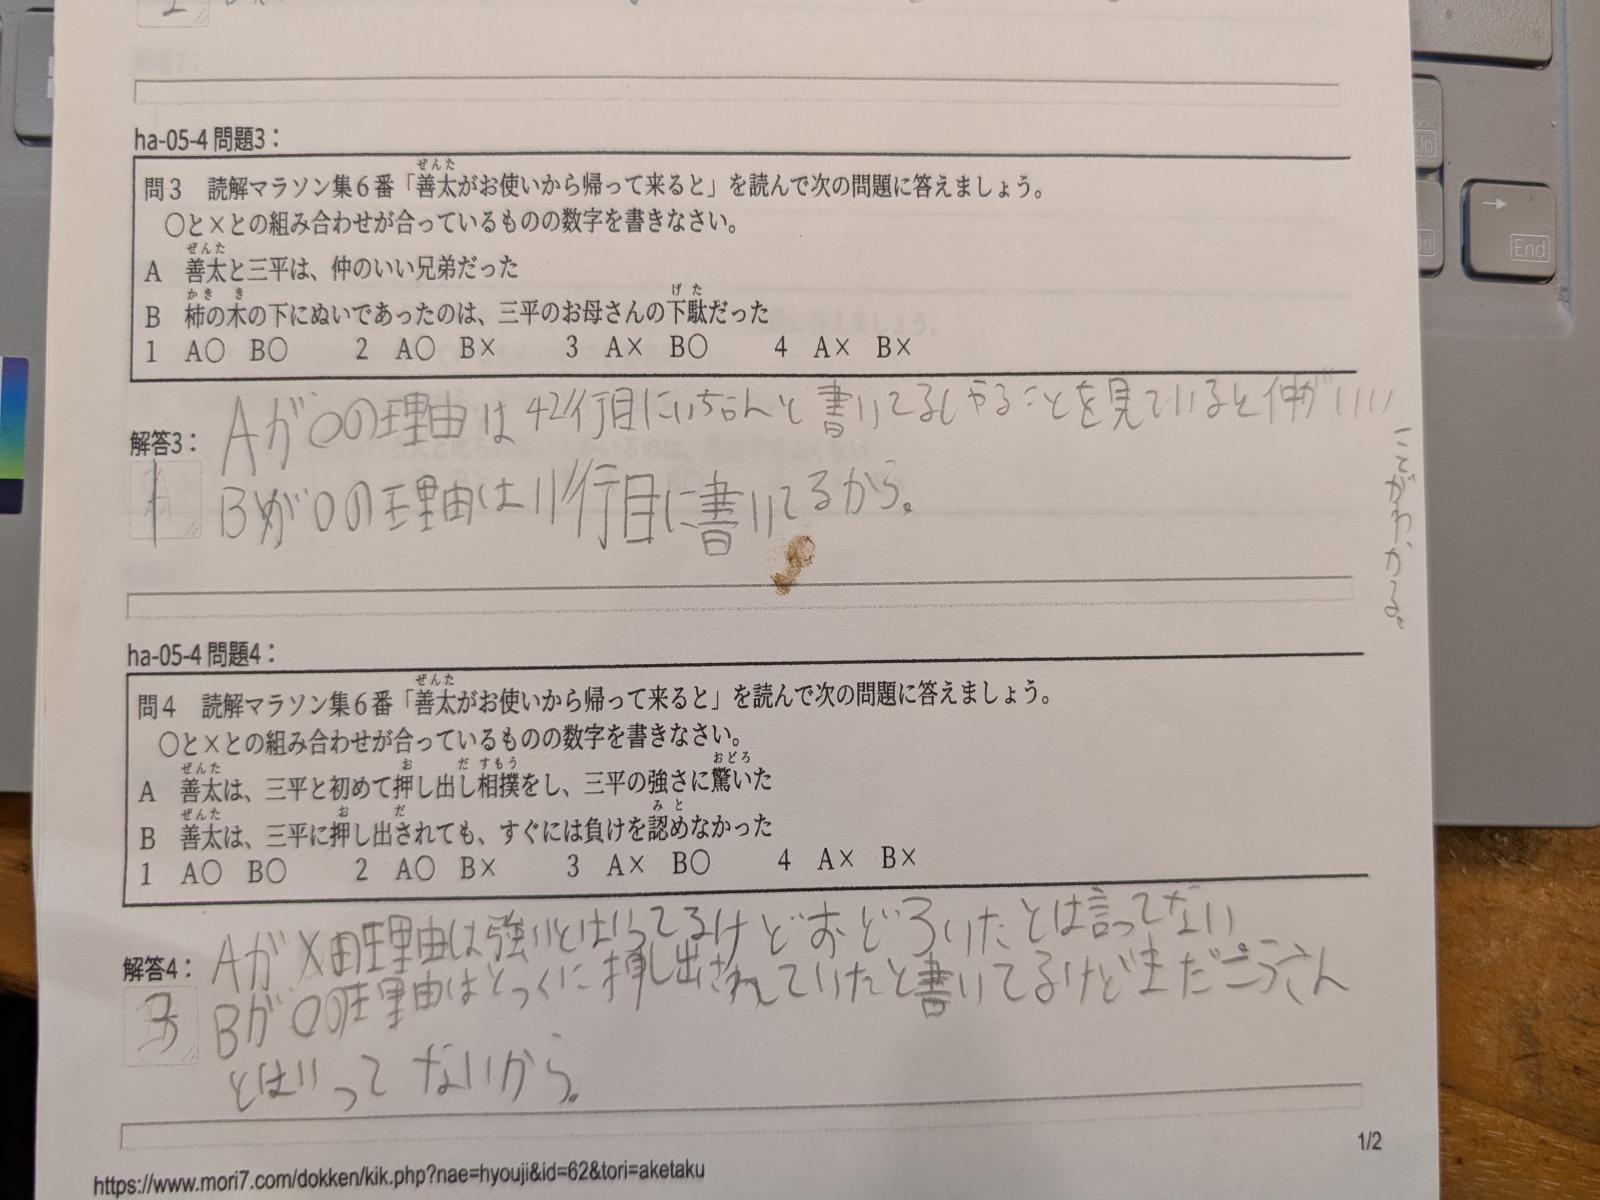 ha-05-4 問題3：
ぜんた
問3　読解マラソン集6番「善太がお使いから帰って来ると」を読んで次の問題に答えましょう。
〇と×との組み合わせが合っているものの数字を書きなさい。
ぜんた
A　善太と三平は、仲のいい兄弟だった
かき　き　げた
B　柿の木の下にぬいであったのは、三平のお母さんの下駄だった
1　A〇　B〇　2　A〇　B×　3　A×　B〇　4　A×　B×
Aが〇の理由は42行目にいちらんと書いてるしやることを見ていると仲がいい
ことがわかる。
解答3：
1
Bが〇の理由は11行目に書いてるから。
ha-05-4 問題4：
ぜんた
問4　読解マラソン集6番「善太がお使いから帰って来ると」を読んで次の問題に答えましょう。
〇と×との組み合わせが合っているものの数字を書きなさい。
ぜんた　お　だ　すもう　おどろ
A　善太は、三平と初めて押し出し相撲をし、三平の強さに驚いた
ぜんた　お　だ　みと
B　善太は、三平に押し出されても、すぐには負けを認めなかった
1　A〇　B〇　2　A〇　B×　3　A×　B〇　4　A×　B×
Aが×理由は強いとはいってるけどおどろいたとは言ってない
解答4：
3
Bが〇の理由はとっくに押し出されていたと書いてるけどまだこうさん
とはいってないから。
1/2
https://www.mori7.com/dokken/kik.php?nae=hyouji&id=62&tori=aketaku
End